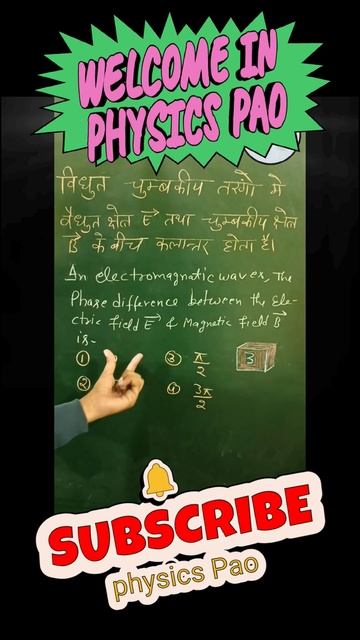 WELCOME IN
PHYSICS PAO
विधुत चुम्बकीय तरंगो मे
वैधुत क्षेत्र E तथा चुम्बकीय क्षेत्र
B के बीच कलान्तर होता है।
In electromagnetic waves, The
Phase difference between the Ele-
ctric field E & Magnetic field B
is-
① ③ π/2
② ④ 3π/2
3
SUBSCRIBE
physics Pao